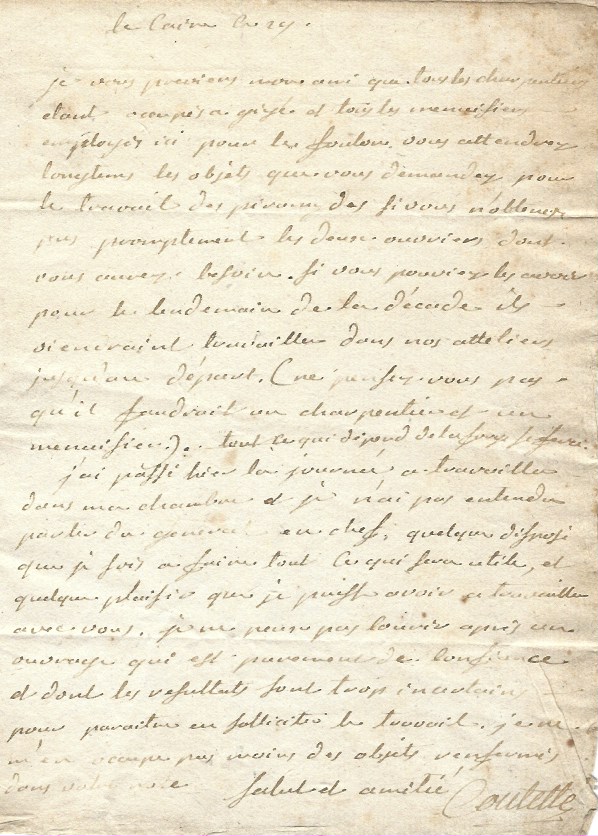 le Caire le 29.
je vous previens mon ami que tous les charpentiers
etant occupés a gizé et tous les menuisiers
employés ici pour les foulons vous attendrez
longtems les objets que vous demandez pour
le travail des piramydes si vous n'obtenez
pas promptement les deux ouvriers dont
vous avez besoin. si vous pouviez les avoir
pour le lendemain de la décade ils
viendraint travailler dans nos atteliers
jusqu'au départ. (ne pensez vous pas
qu'il faudroit un charpentier et un
menuisier). tout ce qui dépend de la
j'ai passé hier la journée a travailler
dans ma chambre et je n'ai pas entendu
parler du general en chef, quelque disposé
que je sois a faire tout ce qui sera utile, et
quelque plaisir que je puisse avoir a travailler
avec vous. je ne peux pas courir après un
ouvrage qui est purement de confience
et dont les resultats sont trop incertains
pour paraitre en sollicité le travail. je ne
m'en occupe pas moins des objets renfermés
dans votre note Salut et amitié Coutelle